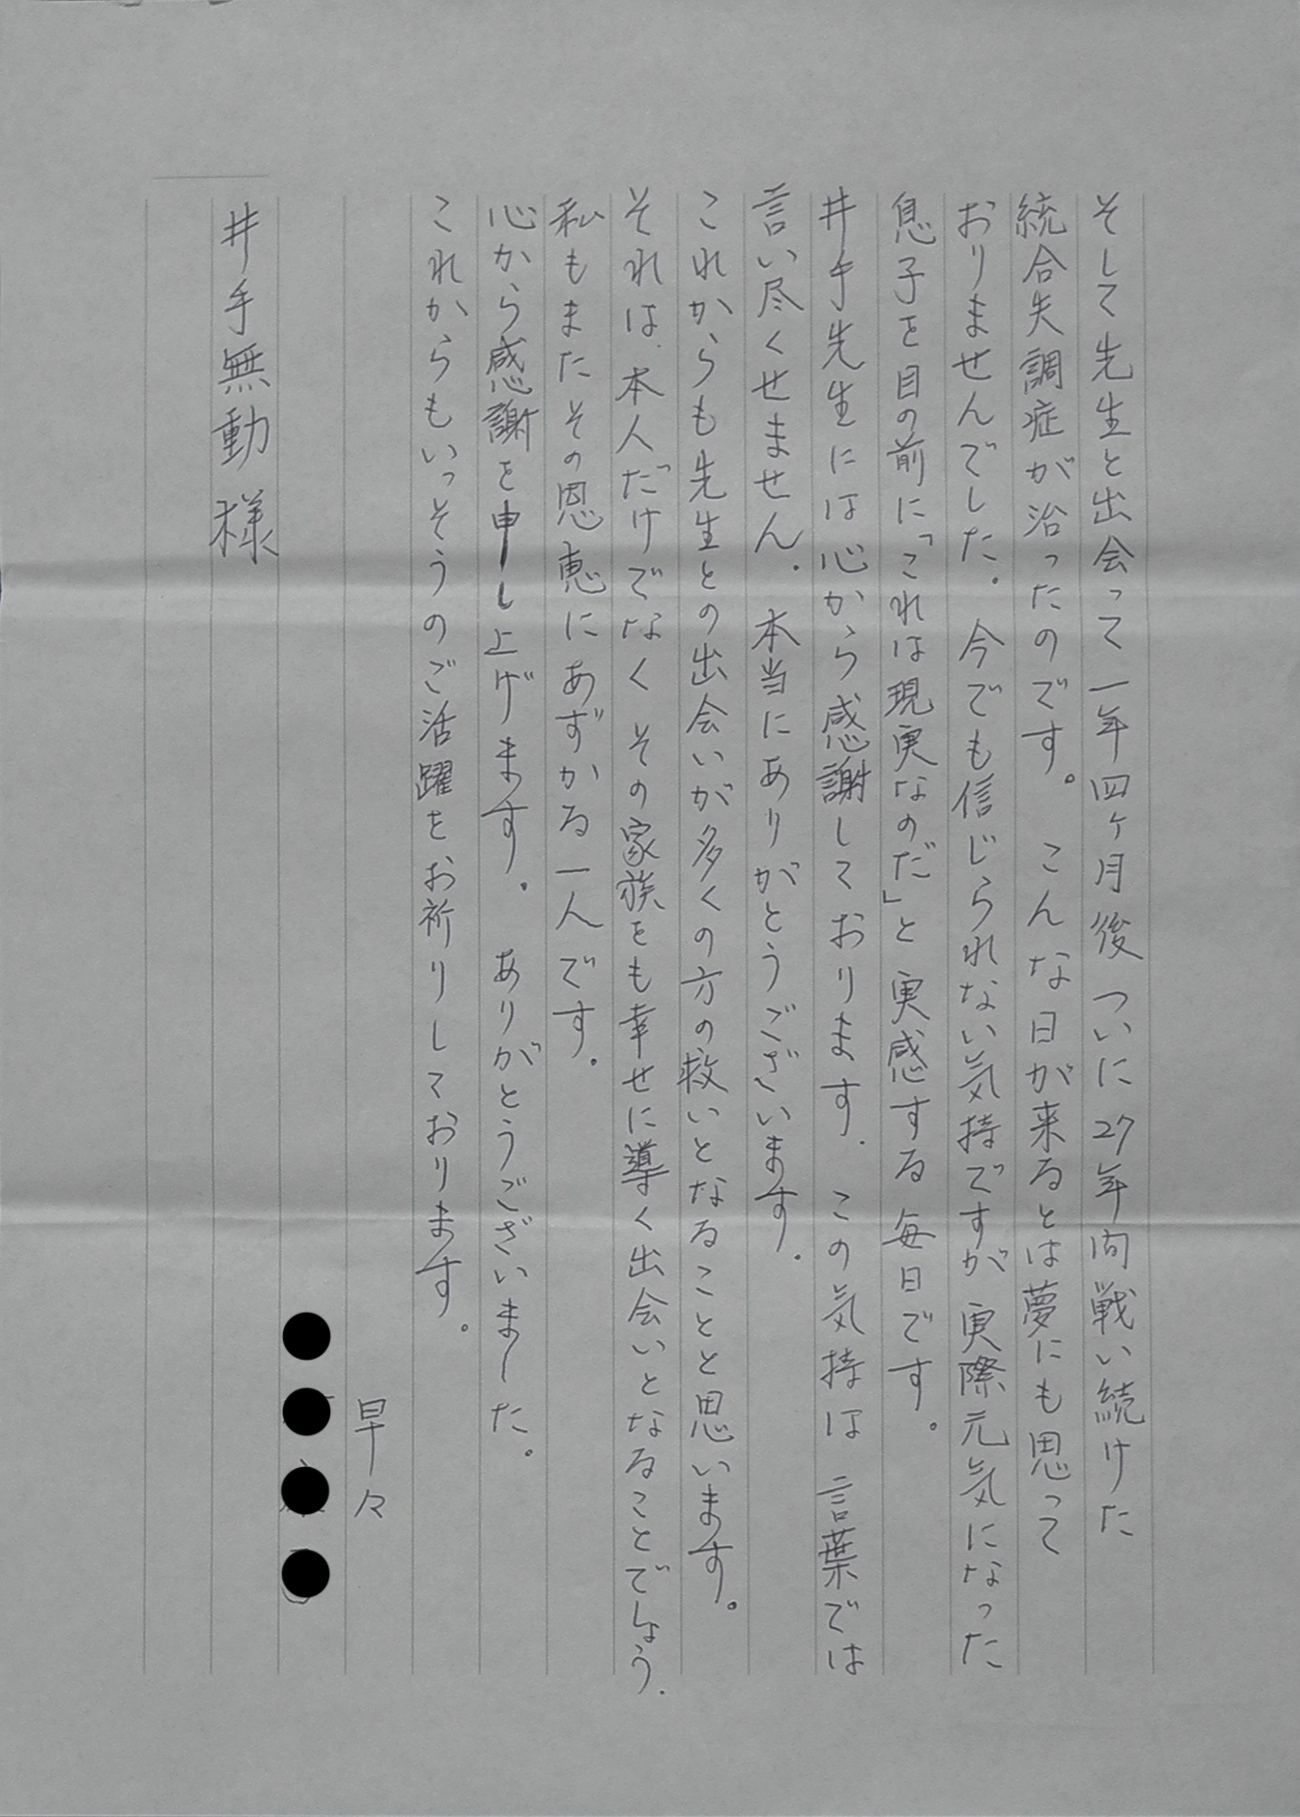 そして先生と出会って一年四ヶ月後 ついに27年間戦い続けた
統合失調症が治ったのです。 こんな日が来るとは夢にも思って
おりませんでした。今でも信じられない気持ですが 実際元気になった
息子を目の前に「これは現実なのだ」と 実感する 毎日です。
井手先生には心から感謝しております。 この気持は 言葉では
言い尽くせません。 本当にありがとうございます。
これからも先生との出会いが多くの方の救いとなることと思います。
それは、本人だけでなく その家族をも幸せに導く出会いとなることでしょう。
私もまたその恩恵にあずかる一人です。
心から感謝を申し上げます。 ありがとうございました。
これからもいっそうのご活躍をお祈りしております。
早々
井手無動様